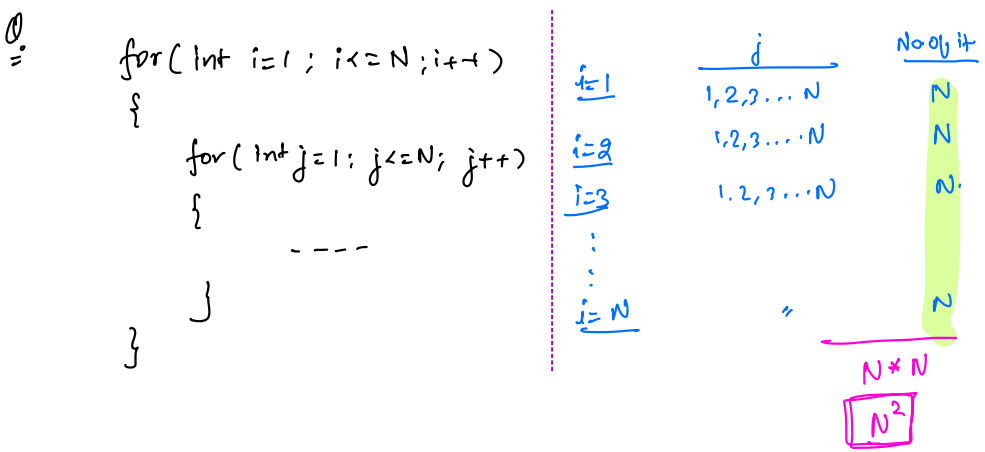 Q.
for( int i=1 ; i<=N ; i++ )
{
for( int j=1; j<=N; j++)
{
----
}
}
j No of it
i=1 1,2,3...N N
i=2 1,2,3...N N
i=3 1.2,3...N N.
:
:
i=N " N
N*N
N²